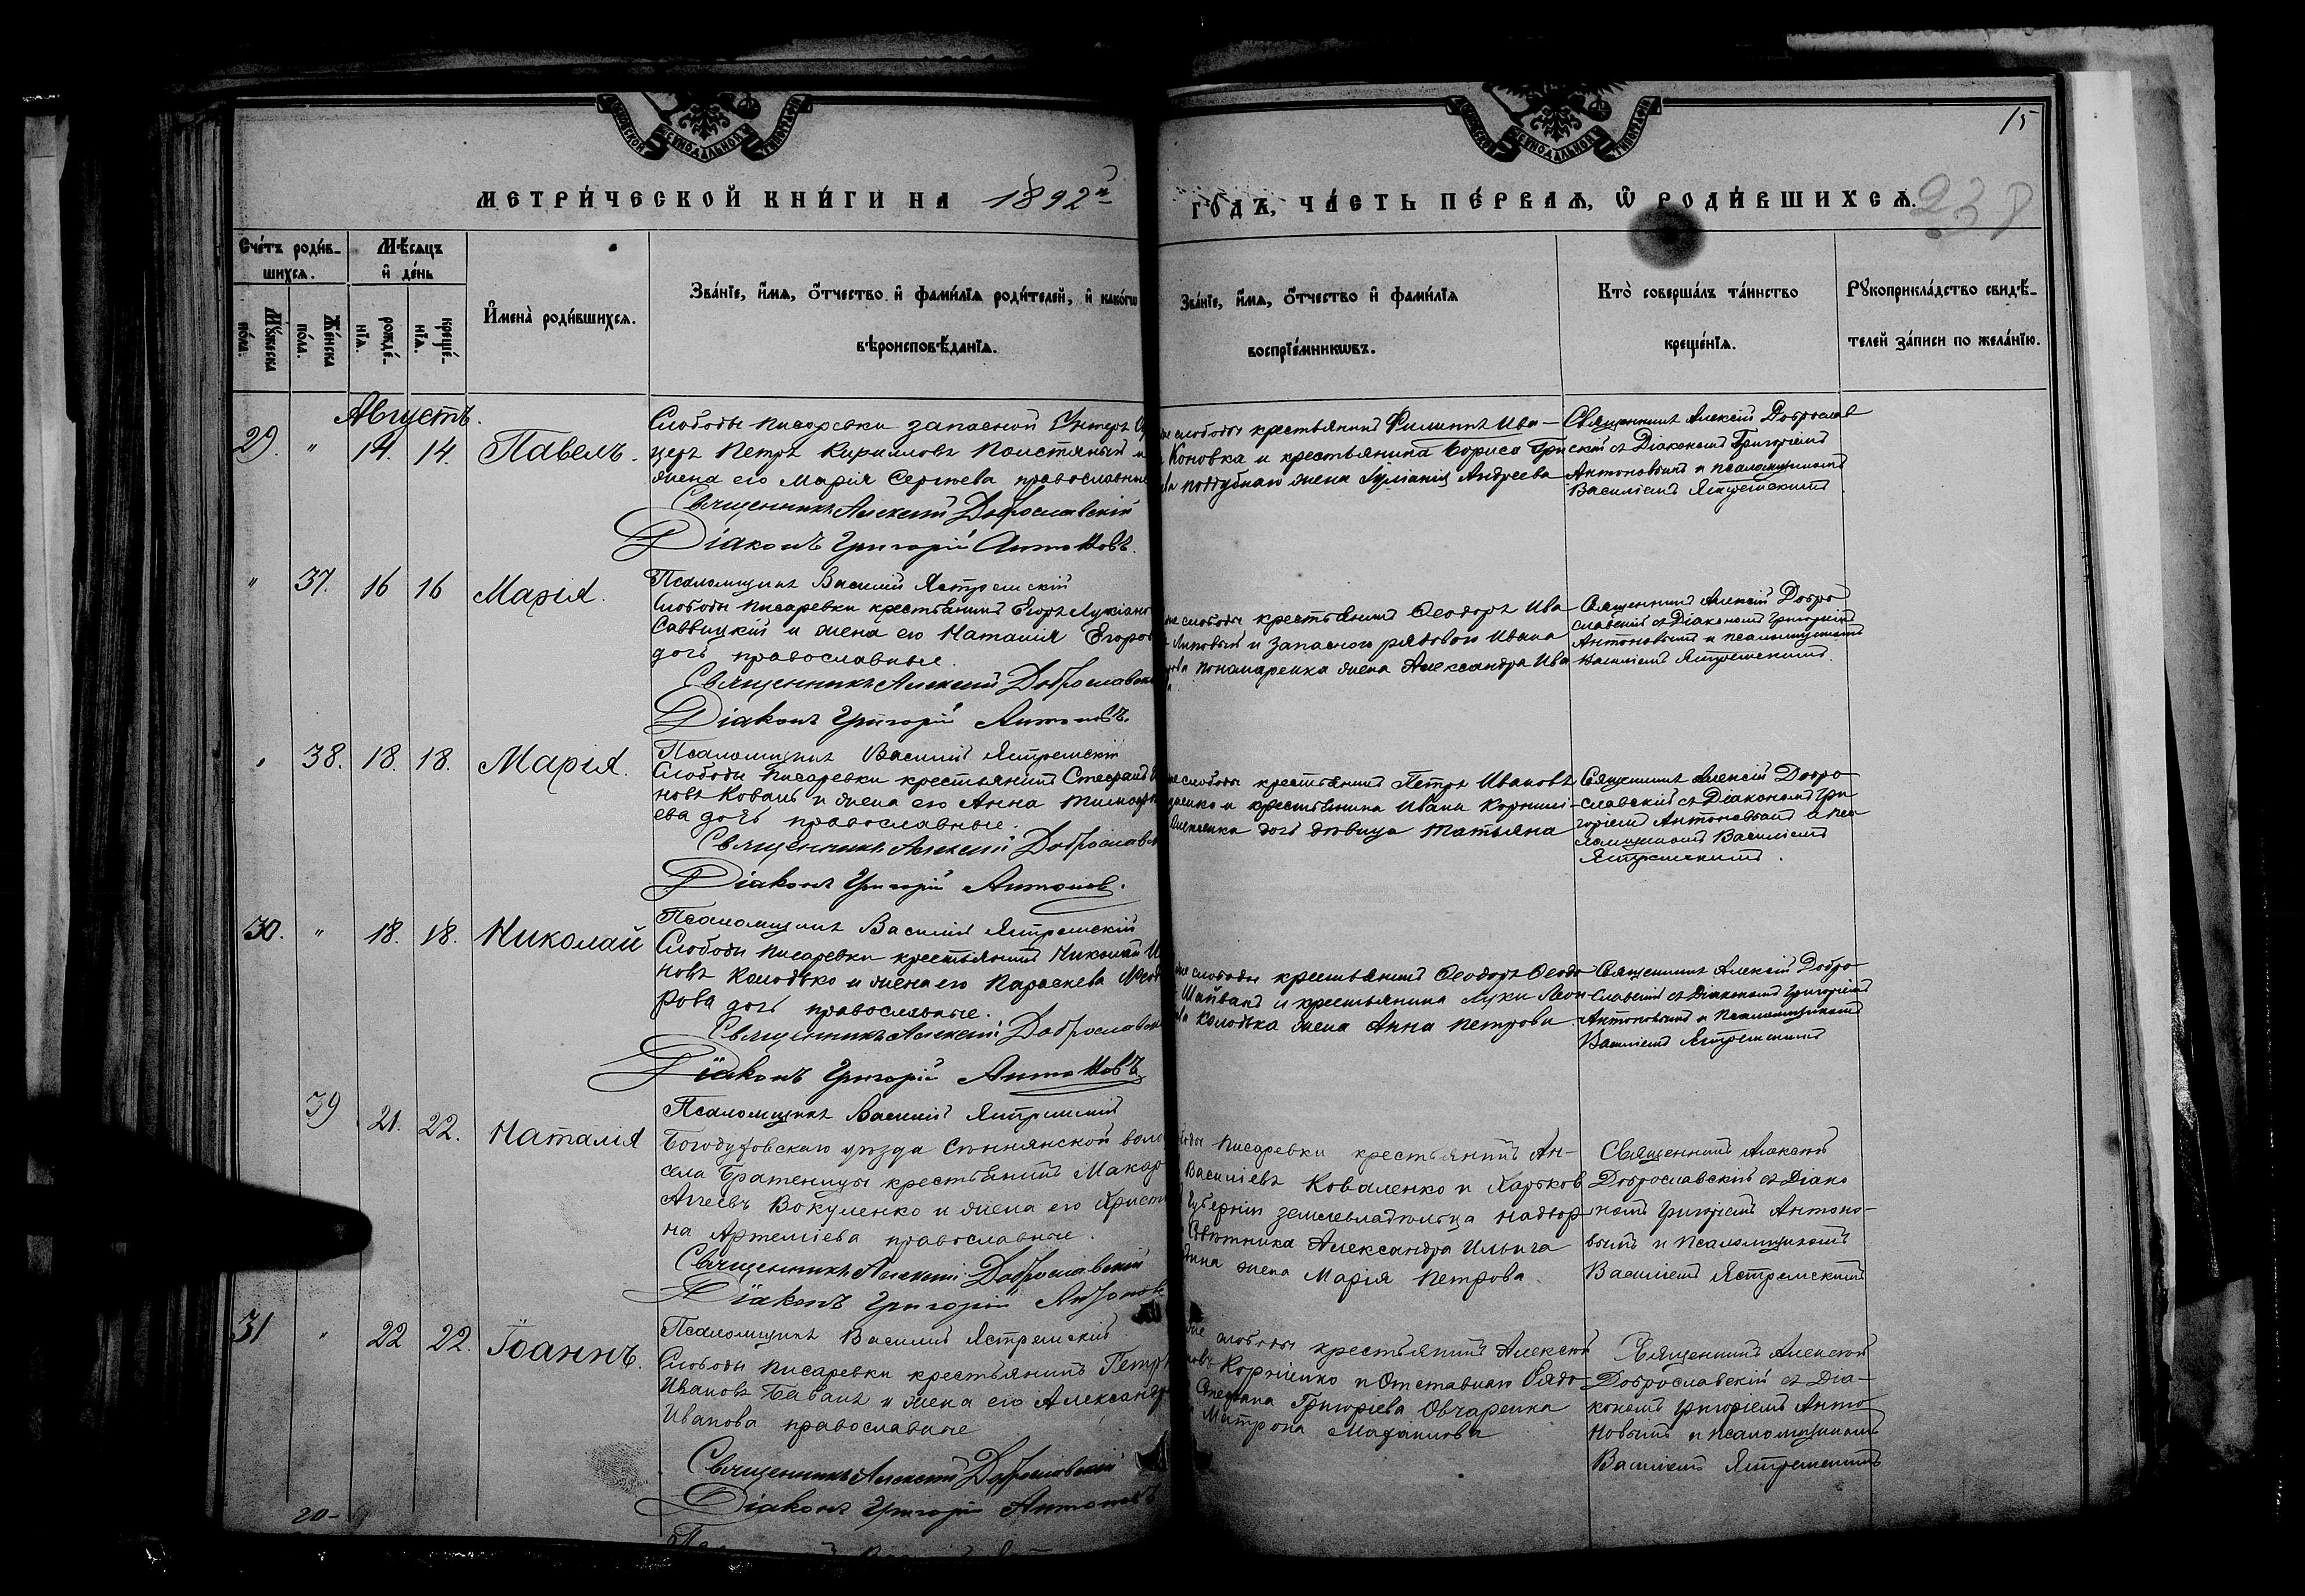 15
238
МЕТРИЧЕСКОЙ КНИГИ НА 1892й ГОДЪ, ЧАСТЬ ПЕРВАЯ, Ѡ РОДИВШИХСЯ.
Счетъ родив-
шихся.
Мѣсяцъ
и день
Мꙋжеска
пола.
Женска
пола.
рожде-
нїя.
креще-
нїя.
Имена родившихся.
Званїе, имя, отчество и фамилїя родителей, и какогѡ
вѣроисповѣданїя.
Званїе, имя, отчество и фамилїя
воспрїемникѡвъ.
Кто совершалъ таинство
крещенїя.
Рꙋкоприкладство свидѣ-
телей записи по желанїю.
Августъ.
29. " 14. 14. Павелъ.
Слободы Писаревки запасной Унтеръ
церъ Петръ Кирилловъ
жена его Марія Сергѣева православные
Священникъ Алексій Доброславскій
Діаконъ Григорій Антоновъ.
Псаломщикъ Василій Ястремскій
слободы крестьянинъ Филиппъ Ива-
Коновка и крестьянина Бориса Гри
Поддубнаго жена Іуліанія Андреева
Священникъ Алексій Доброслав
скій съ Діакономъ Григоріемъ
Антоновымъ и псаломщикомъ
Василіемъ Ястремскимъ
" 37. 16 16 Марія.
Слободы Писаревки крестьянинъ Егоръ Лукіано
Саввицкій и жена его Наталія Егоров
дочь православные.
Священникъ Алексій Доброславск
Діаконъ Григорій Антоновъ.
Псаломщикъ Василій Ястремскій
слободы крестьянинъ Ѳеодоръ Ива
Липовый и запаснаго рядового Ивана
Пономаренка жена Александра Ива
Священникъ Алексій Добро
славскій съ Діакономъ Григоріемъ
Антоновымъ и псаломщикомъ
Василіемъ Ястремскимъ.
38. 18. 18. Марія.
Слободы Писаревки крестьянинъ Стефанъ
новъ Коваль и жена его Анна Тимоѳ
ева дочь православные.
Священникъ Алексій Доброслав
Діаконъ Григорій Антоновъ.
Псаломщикъ Василій Ястремскій
слободы крестьянинъ Петръ Ивановъ
и крестьянина Ивана Корнил-
дочь дѣвица Татьяна
Священникъ Алексій Добро-
славскій съ Діакономъ Гри
горіемъ Антоновымъ и пса
ломщикомъ Василіемъ
Ястремскимъ.
30. " 18. 18. Николай
Слободы Писаревки крестьянинъ Николай
новъ Колодько и жена его Параскева Ѳеод
рова дочь православные.
Священникъ Алексій Доброславск
Діаконъ Григорій Антоновъ
Псаломщикъ Василій Ястремскій
слободы крестьянинъ Ѳеодоръ Ѳеодо
Шайванъ и крестьянина Луки Леон
Колодька жена Анна Петрова.
Священникъ Алексій Добро-
славскій съ Діакономъ Григоріемъ
Антоновымъ и Псаломщикомъ
Василіемъ Ястремскимъ
39 21. 22. Наталія
Богодуховскаго уѣзда Сѣннянской воло
села Братеницы крестьянинъ Макар
Агѣевъ Вокуленко и жена его Христи
на Артеміева православные.
Священникъ Алексій Доброславскій
Діаконъ Григорій Антонов
Псаломщикъ Василій Ястремскій
Писаревки крестьянинъ Ан-
Василіевъ Коваленко и Харьков
Губерніи землевладѣльца надвор
Совѣтника Александра Ильича
жена Марія Петрова.
Священникъ Алексій
Доброславскій съ Діако
номъ Григоріемъ Антоно-
вымъ и Псаломщикомъ
Василіемъ Ястремскимъ
31 " 22 22. Іоаннъ.
Слободы Писаревки крестьянинъ Петръ
Ивановъ Бабакъ и жена его Александр
Иванова православные
Священникъ Алексій Доброславскій
Діаконъ Григорій Антоновъ
слободы крестьянинъ Алексій
Корніенко и Отставнаго Рядо-
Стефана Григорьева Овчаренка
Матрона Михаилова
Священникъ Алексій
Доброславскій съ Діа-
кономъ Григоріемъ Анто
новымъ и Псаломщикомъ
Василіемъ Ястремскимъ
20-